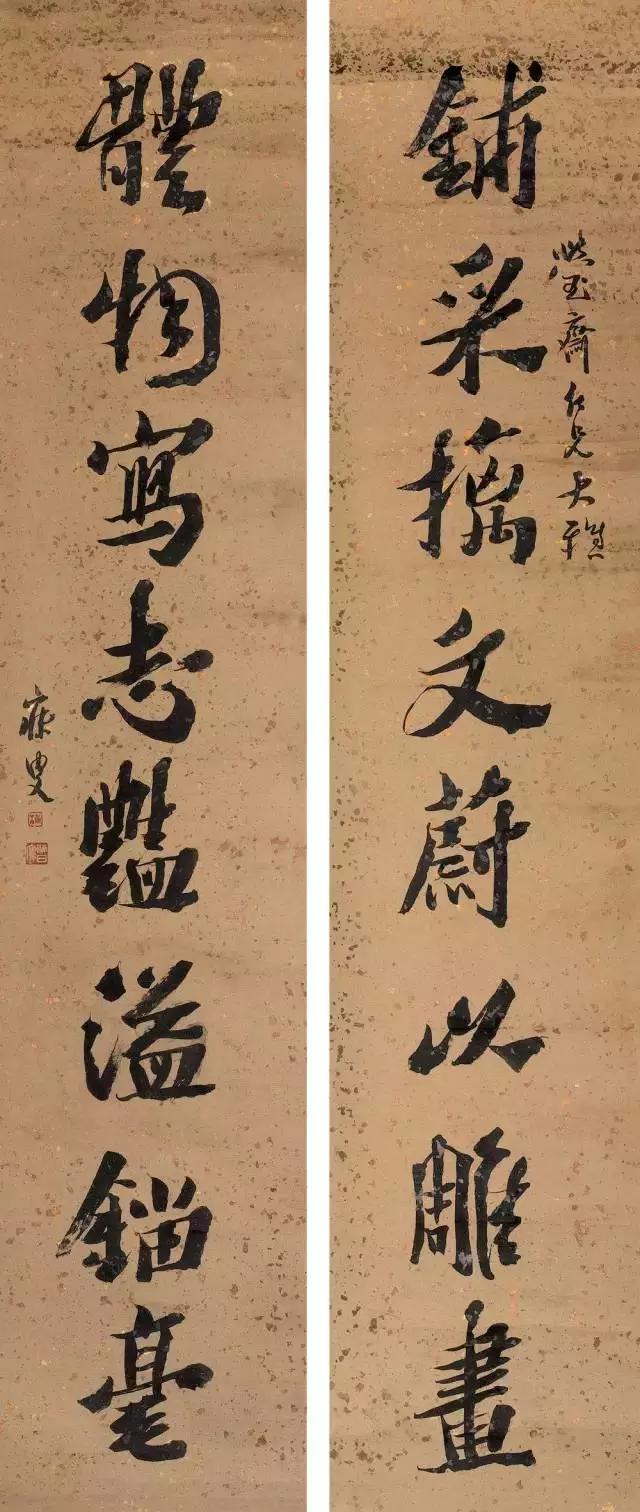 鋪采摛文蔚以雕畫
齋仁兄大雅
體物寫志豔溢錙毫
寐叟